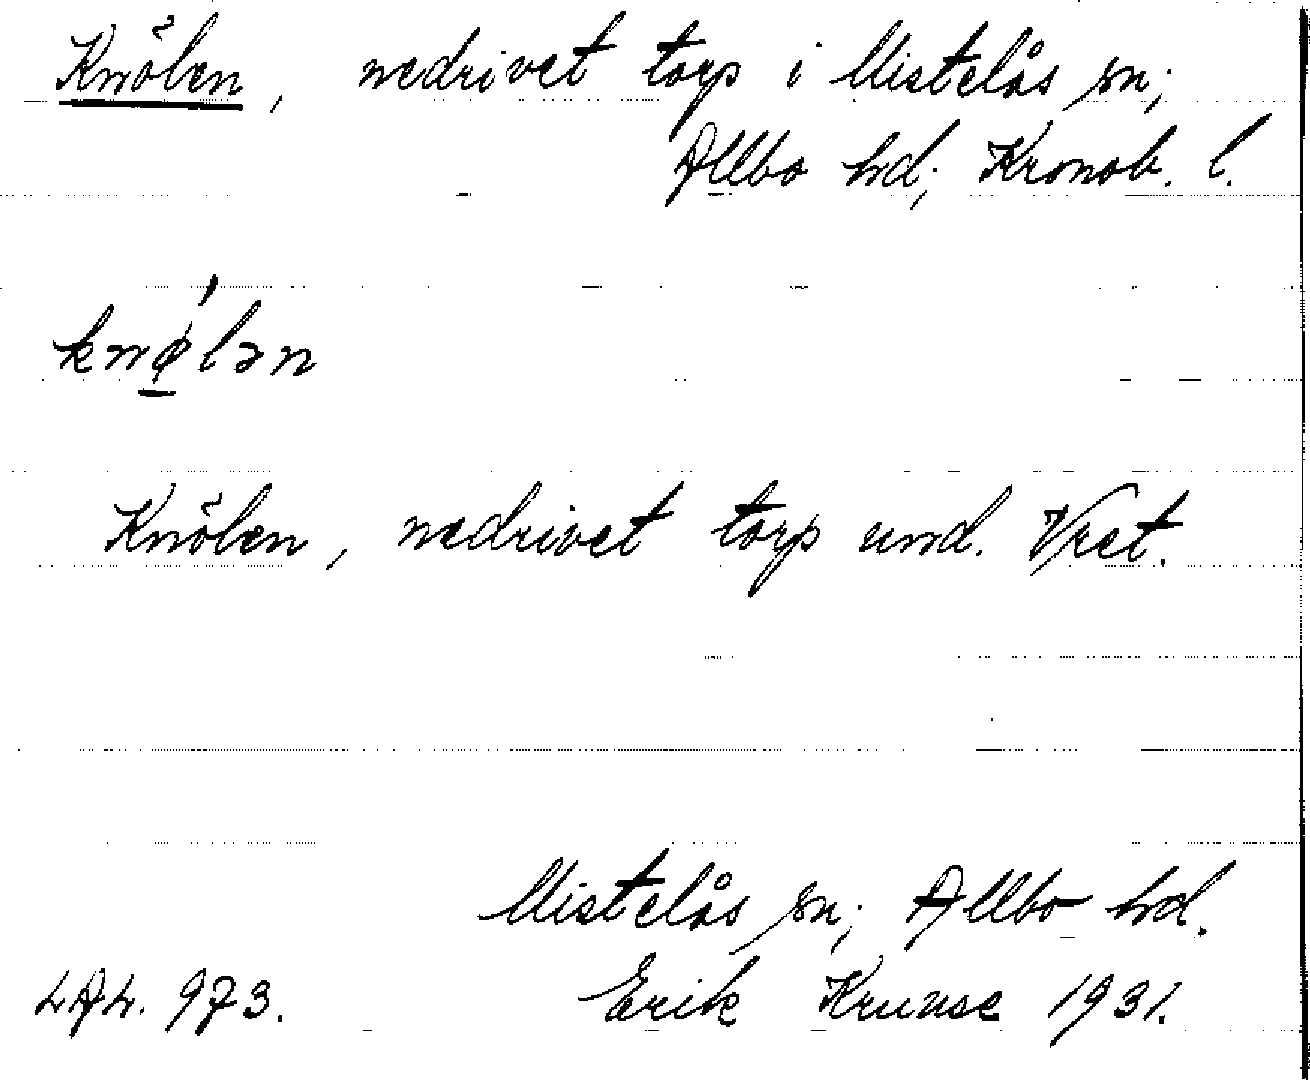 Knölen, nedrivet torp i Mistelås sn;
Allbo hd; Kronob. l.
knǿ̱lən
Knölen, nedrivet torp und. Vret.
Mistelås sn; Allbo hd.
LAL. 973. Erik Kruuse 1931.